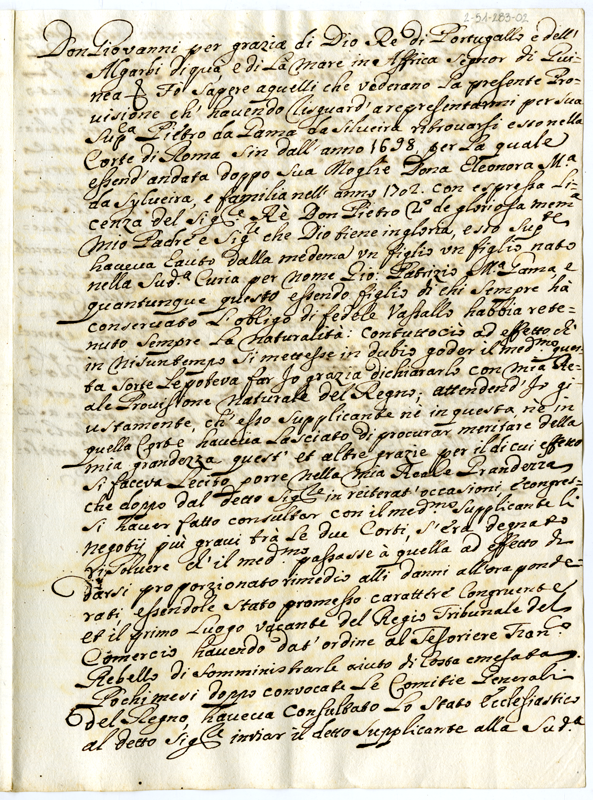 2-51-283-02
Don Giovanni per grazia di Dio Re di Portugallo e dell'
Algarbi di qua e di La mare in Affrica Segnor di Gui-
nea & Fo' Sapere aquelli che vederano La presente Pro-
uisione ch' hauendo riguard' a representarmi per sua
Sup.ca Pietro da Gama da Silueira ritrouarsi esso nella
Corte di Roma sin dall' anno 1698, per La quale
essend' andata doppo sua Moglie Dona Eleonora M.a
da Sylueira, e familia nell' anno 1702. con espressa Li-
cenza del Sig.re Rè Don Pietro 2.o de gloriosa mem.a
Mio Padre e Sig.re che Dio tiene in gloria, esso Sup.te
haueua hauto dalla medema vn figlio vn figlio nato
nella Sud.a Curia per nome Gio: Patrizio M.a Gama, e
quantunque questo essendo figlio di chi sempre hà
conseruato L'obligo di fedele Vassallo habbia rete-
nuto sempre La naturalità: contuttociò ad effetto ch'
in nisun tempo si mettesse in dubio goder il med.mo ques-
ta sorte Le poteua far Io grazia dichiararlo con mia Re-
ale Prouisione naturale del Regno; attendend' Io gi-
ustamente, ch' esso Supplicante nè in questa, nè in
quella Corte haueua Lasciato di procurar meritare della
mia grandezza quest' et altre grazie per il di cui effetto
si faceua Lecito porre nella mia Reale Grandezza
che doppo dal detto Sig.re in reiterat' occasioni, e congres-
si hauer fatto consultar con il med.mo Supplicante Li
negotij più graui trà Le due Corti, s'era degnato
risoluere ch' il med.mo passasse à quella ad effetto di
darsi proporzionato rimedio alli danni allora ponde-
rati, essendole stato promesso carattere congruente
et il primo Luogo vacante del Regio Tribunale del
Comercio hauendo dat' ordine al Tesoriere Fran.co
Rebello di somministrarle aiuto di Costa e mesata.
Pochi mesi doppo conuocate Le Comitie Generali
del Regno, haueua consultato Lo Stato Ecclesiastico
al detto Sig.re inuiar il detto Supplicante alla Sud.a